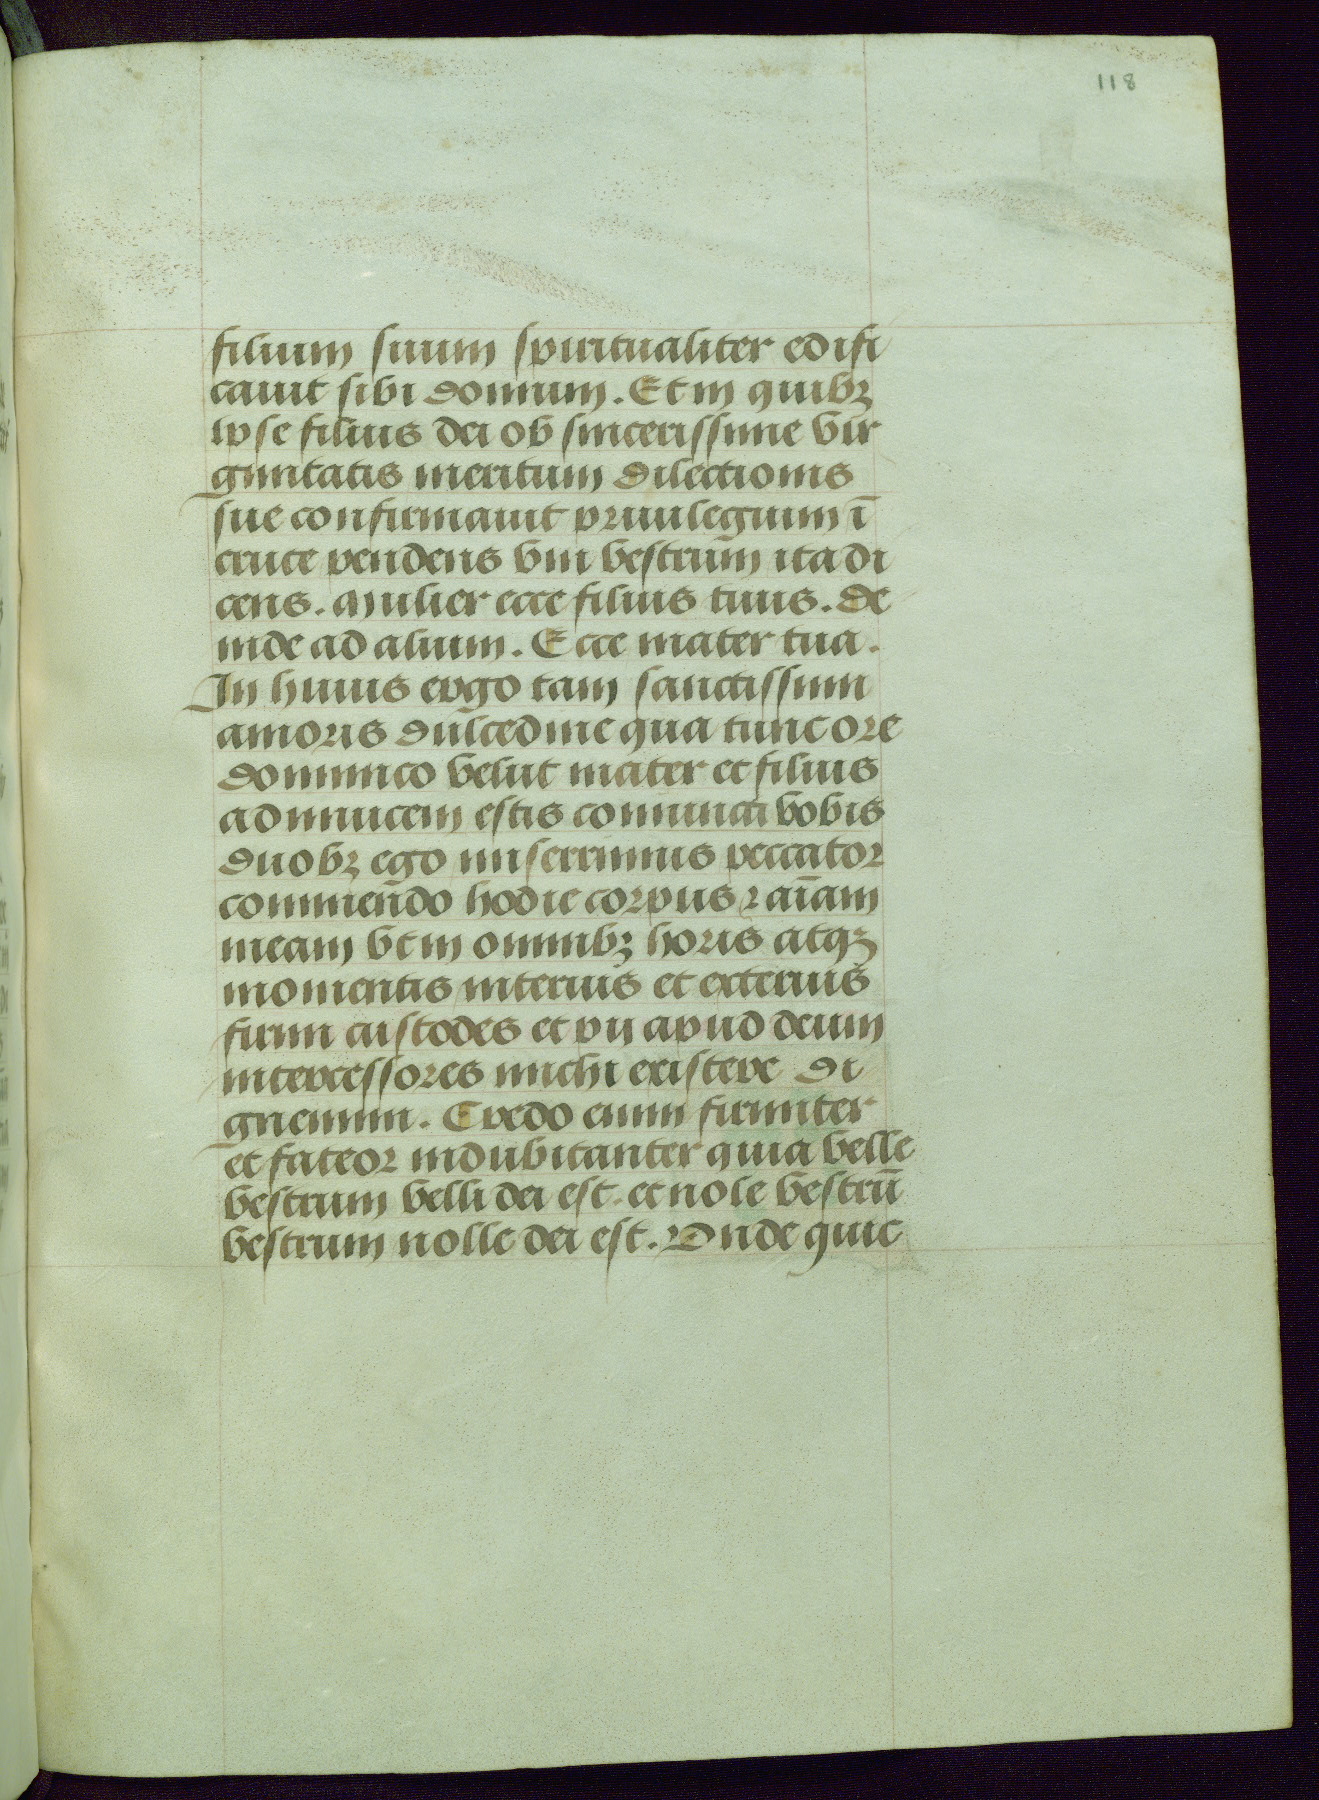 118
filium suum spiritualiter edifi
cauit sibi domum. Et in quibꝫ
ipse filius dei ob sincerissime vir
ginitatis meritum dilectionis
sue confirmauit priuilegium ī
cruce pendens vni vestrum̄ ita di
cens. Mulier ecce filius tuus. De
inde ad alium. Ecce mater tua.
In huius ergo tam sanctissimi
amoris dulcedine qua tunc ore
dominico velut mater et filius
ad inuicem estis coniuncti vobis
duobꝫ ego miserrimus peccator
commen̄do hodie corpus ⁊ aīam
meam vt in omnibꝫ horis atqꝫ
momentis interius et exterius
firmi custodes et pij apud deum
intercessores michi existere di
gnemini. Credo enim firmiter
et fateor indubitanter quia velle
vestrum velli dei est. et nole vestrū
vestrum nolle dei est. Vnde quic